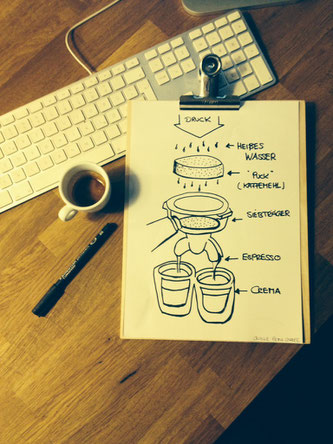 DRUCK
HEIßES
WASSER
"PUCK"
(KAFFEEMEHL)
SIEBTRÄGER
ESPRESSO
CREMA